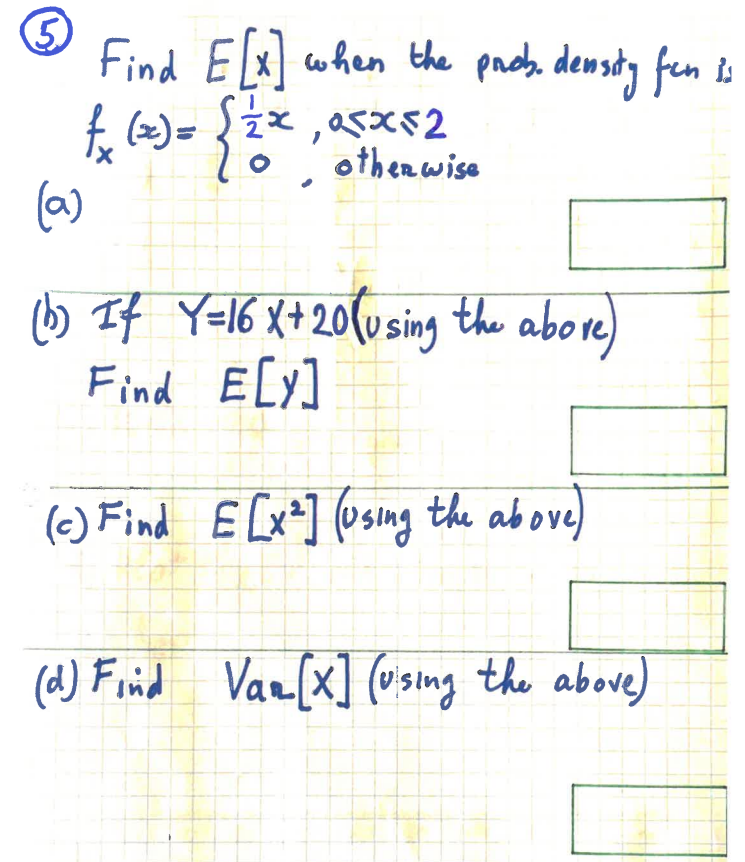 5.
Find E[x] when the prob. density fcn is
fx (x) = { 1/2 x , 0≤x≤2
0 , otherwise
(a)
(b) If Y=16 X+20 (using the above)
Find E[Y]
(c) Find E[x²] (using the above)
(d) Find Var[X] (using the above)